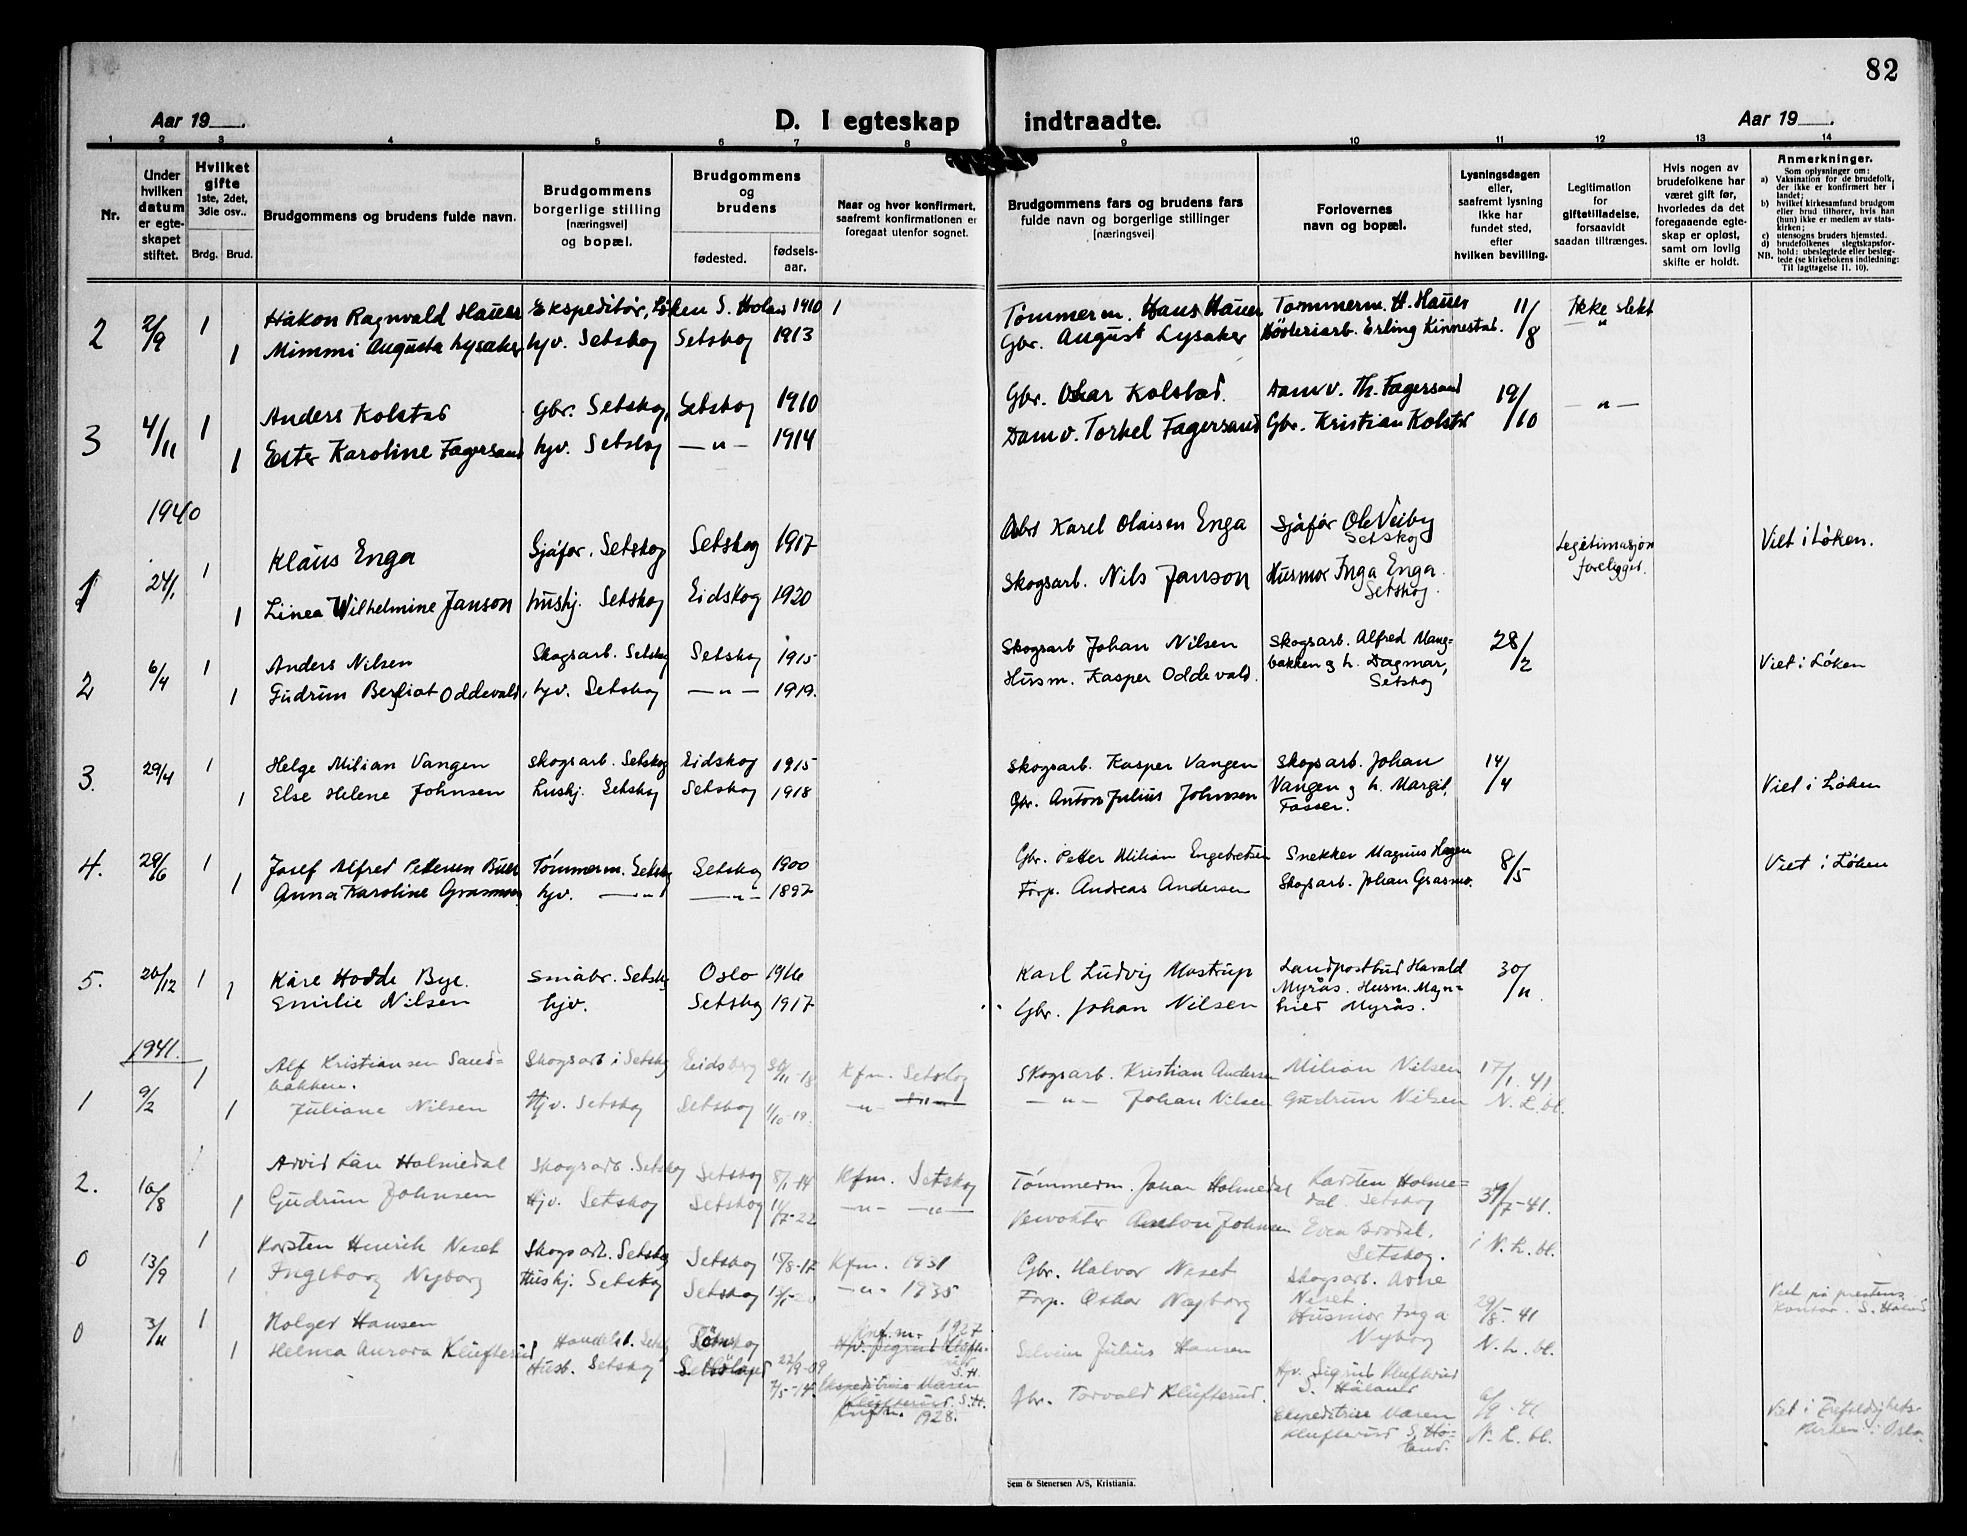 82
Aar 19 . D. I egteskap indtraadte. Aar 19 .
1 2 3 4 5 6 7 8 9 10 11 12 13 14
Nr.
Under hvilken datum er egteskapet stiftet.
Hvilket gifte 1ste, 2det, 3die osv..
Brdg. Brud.
Brudgommens og brudens fulde navn.
Brudgommens borgerlige stilling (næringsvei) og bopæl.
Brudgommens og brudens
fødested. fødsels-aar.
Naar og hvor konfirmert, saafremt konfirmationen er foregaat utenfor sognet.
Brudgommens fars og brudens fars fulde navn og borgerlige stillinger (næringsvei)
Forlovernes navn og bopæl.
Lysningsdagen eller, saafremt lysning ikke har fundet sted, efter hvilken bevilling.
Legitimation for giftetilladelse, forsaavidt saadan tiltrænges.
Hvis nogen av brudefolkene har været gift før, hvorledes da det foregaaende egteskap er opløst, samt om lovlig skifte er holdt.
Anmerkninger.
Som oplysninger om:
a) Vaksination for de brudefolk, der ikke er konfirmert her i landet;
b) hvilket kirkesamfund brudgom eller brud tilhører, hvis han (hun) ikke er medlem av statskirken;
c) utensogns bruders hjemsted.
d) brudefolkenes slegtskapsforhold: ubeslegtede eller beslegtede (se kirkebokens indledning: NB. Til Iagttagelse II. 10).
2 2/9 1 Håkon Ragnvald Hauer Ekspeditør, Løken S. Høland 1910 1 Tømmerm. Hans Hauer Tømmerm. H. Hauer 11/8 Ikke slekt
1 Mimmi Augusta Lysaker hjv. Setskog Setskog 1913 Gbr. August Lysaker Erling Kinnestad. — " —
3 4/11 1 Anders Kolstad Gbr. Setskog, Setskog 1910 Gbr. Oskar Kolstad. Damv. Th. Fagersand 19/10 — " —
1 Ester Karoline Fagersand hjv. Setskog — " — 1914 Damv. Torkel Fagersand Gbr. Kristian Kolstad
1940
1 24/1 1 Klaus Enga Sjåfør. Setskog Setskog 1917 Karel Olaisen Enga Sjåfør Ole Veiby Setskog Legitimasjon foreligger. Viet i Løken.
1 Linea Wilhelmine Janson hushj. Setskog Eidskog 1920 Skogsarb. Nils Janson Husmor Inga Enga. Setskog.
2 6/4 1 Anders Nilsen Skogsarb. Setskog Setskog 1915 Skogsarb Johan Nilsen Skogsarb. Alfred Mangbakken og h. Dagmar, Setskog 28/2 Viet i Løken
1 Gudrun Bergliot Oddevald, hjv. Setskog — " — 1919. Husm. Kasper Oddevald.
3. 29/4 1 Helge Milian Vangen Skogsarb. Setskog Eidskog 1915 Skogsarb. Kasper Vangen Skogsarb. Johan Vangen og h. Margit, Fosser. 14/4 Viet i Løken
1 Else Helene Johnsen hushj. Setskog Setskog 1918 Gbr. Anton Julius Johnsen
4. 29/6 1 Josef Alfred Pettersen Tømmerm. Setskog Setskog 1900 Gbr. Petter Milian Engebretsen Snekker Magnus Hagen 8/5 Viet i Løken
1 Anna Karoline Grasmo hjv. — " — — " — 1897 Forp. Andreas Andersen Skogsarb. Johan Grasmo.
5. 26/12 1 Kåre Hodde Bye. Småbr. Setskog Oslo 1916 Karl Ludvig Mostrup Landpostbud Harald Myrås. Husm. Magnhild Myrås. 30/11.
1 Emilie Nilsen hjv. Setskog 1917 Gbr. Johan Nilsen
1941.
1 9/2 1 Alf Kristiansen Sandbakken. Skogsarb i Setskog 30/11-18 Kfm. Setskog Skogsarb. Kristian Andersen Milian Nilsen 17/1. 41
1 Juliane Nilsen Hjv. Setskog Setskog 11/10-19. — " — — " — Johan Nilsen Gudrun Nilsen N. L. bl.
2. 10/8 Arvid Kåre Holmedal Skogsarb. Setskog Setskog 8/1-14 Kfm. Setskog Tømmerm. Johan Holmedal Karsten Holmedal. Setskog /7-41.
1 Gudrun Johnsen Hjv. Setskog Setskog /7-22 — " — — " — Anton Johnsen Setskog. i N. L. bl.
0 13/9 1 Karsten Henrik Neset Skogsarb. Setskog Setskog 15/8-17 Kfm. 1931 Gbr. Halvor Neset Skogsarb. Arne Neset 29/8-41
1 Ingeborg Nyborg Hushj. Setskog Setskog — " — 1935 Forp. Oskar Nyborg Husmor Inga Nyborg N. L. bl. Viet på prestens kontor. S. Høland
0 3/11 1 Holger Hansen Handelsb. Setskog 22/9-09 Knf.m. 1927 Julius Hansen Hjv. Sigrid Klufterud S. Höland
1 Helma Aurora Klufterud Husb. Setskog 7/5-14. Ekspeditrise Maren Klufterud. S.H. Knfm. 1928. Gbr. Torvald Klufterud. Ekspeditrise Maren Klufterud S. Höland. 6/9-41 N. L. bl. Viet i Trefoldighetskirken i Oslo.
Sem & Stenersen A/S, Kristiania.